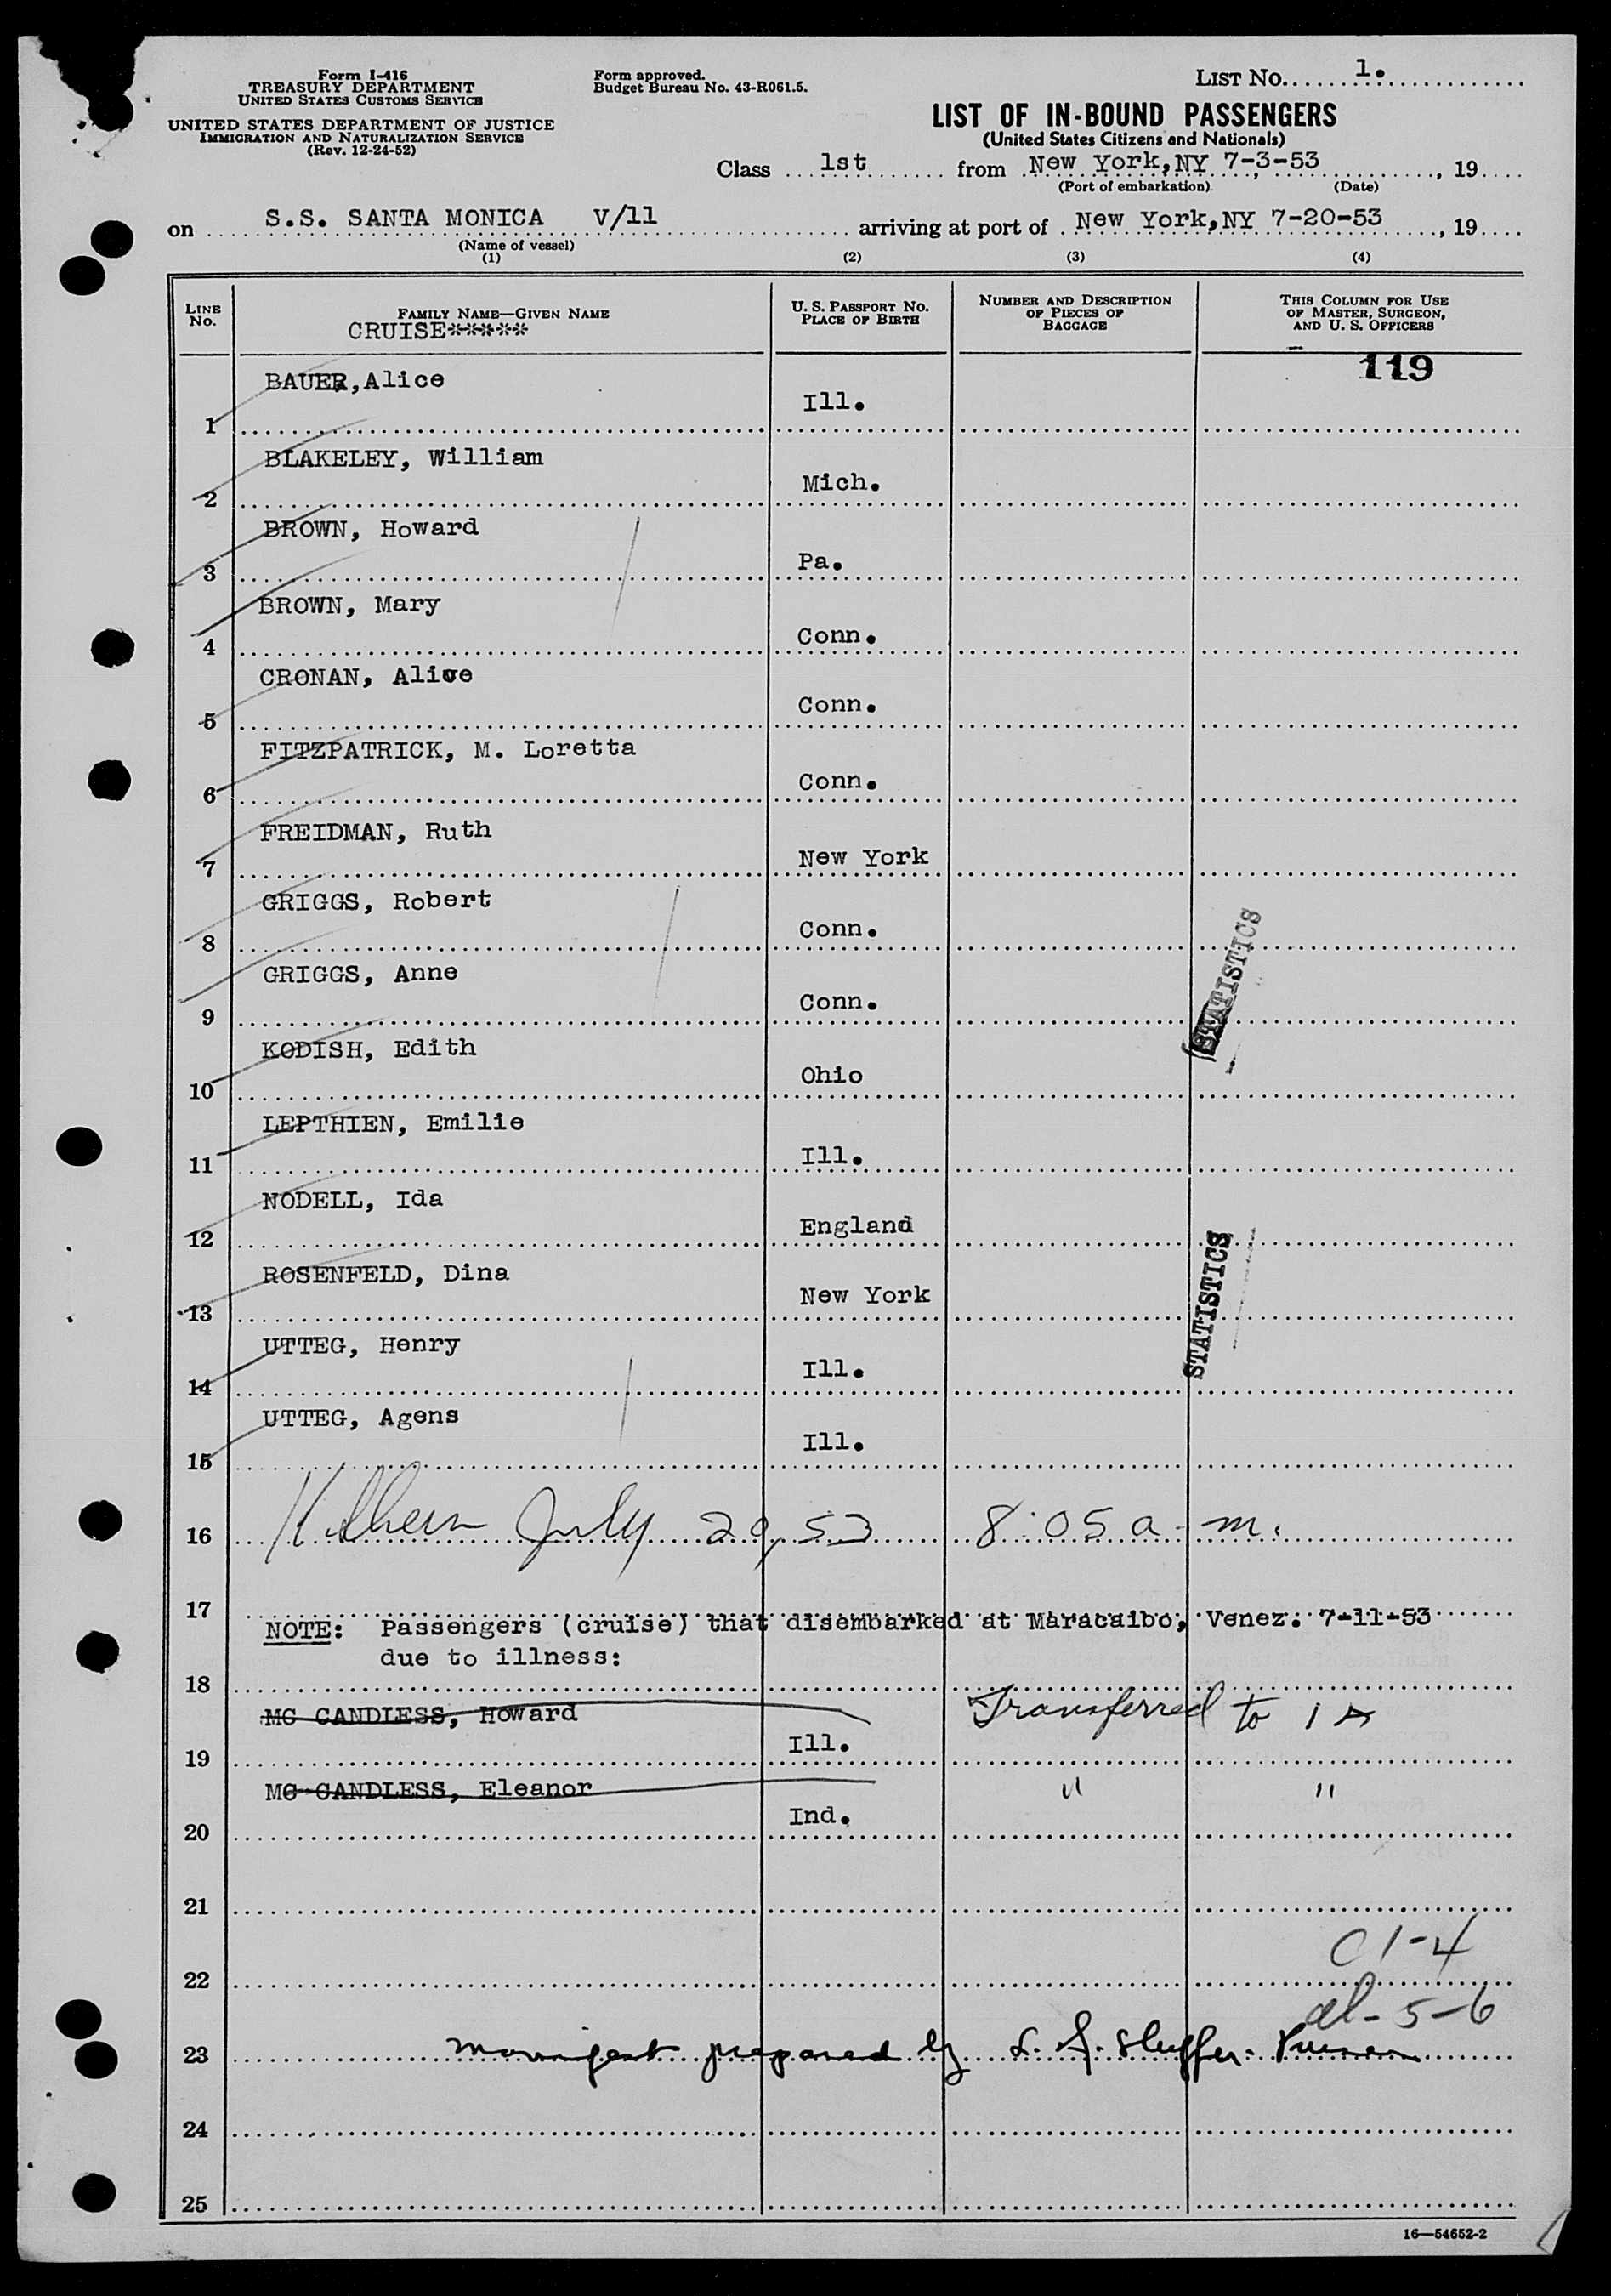 Form I-416
TREASURY DEPARTMENT
UNITED STATES CUSTOMS SERVICE
UNITED STATES DEPARTMENT OF JUSTICE
IMMIGRATION AND NATURALIZATION SERVICE
(Rev. 12-24-52)
Form approved.
Budget Bureau No. 43-R061.5.
LIST NO. 1.
LIST OF IN-BOUND PASSENGERS
(United States Citizens and Nationals)
Class 1st from New York,NY 7-3-53, 19
(Port of embarkation) (Date)
on S.S. SANTA MONICA V/11 arriving at port of New York,NY 7-20-53, 19
(Name of vessel)
(1) (2) (3) (4)
LINE No. FAMILY NAME—GIVEN NAME U. S. PASSPORT NO. PLACE OF BIRTH NUMBER AND DESCRIPTION OF PIECES OF BAGGAGE THIS COLUMN FOR USE OF MASTER, SURGEON, AND U. S. OFFICERS
CRUISE*****
119
1 BAUER,Alice Ill.
2 BLAKELEY, William Mich.
3 BROWN, Howard Pa.
4 BROWN, Mary Conn.
5 CRONAN, Alice Conn.
6 FITZPATRICK, M. Loretta Conn.
7 FREIDMAN, Ruth New York
8 GRIGGS, Robert Conn.
9 GRIGGS, Anne Conn.
STATISTICS
10 KODISH, Edith Ohio
11 LEPTHIEN, Emilie Ill.
12 NODELL, Ida England
13 ROSENFELD, Dina New York
STATISTICS
14 UTTEG, Henry Ill.
15 UTTEG, Agens Ill.
16 July 20, 53 8:05 a.m.
17 NOTE: Passengers (cruise) that disembarked at Maracaibo, Venez. 7-11-53
due to illness:
18
19 MC CANDLESS, Howard Ill. Transferred to 1A
20 MC CANDLESS, Eleanor Ind. " "
21
22 C1-4
al-5-6
23 Manifest prepared by Purser
24
25
16—54652-2